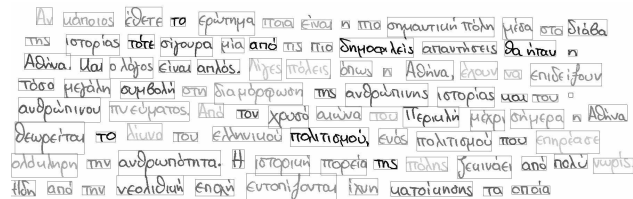 Αν κάποιος έθετε το ερώτημα ποια είναι η πιο σημαντική πόλη μέσα στο διάβα
της ιστορίας τότε σίγουρα μία από τις πιο δημοφιλείς απαντήσεις θα ήταν η
Αθήνα. Και ο λόγος είναι απλός. Λίγες πόλεις, όπως η Αθήνα, έχουν να επιδείξουν
τόσο μεγάλη συμβολή στη διαμόρφωση της ανθρώπινης ιστορίας και του
ανθρώπινου πνεύματος. Από τον χρυσό αιώνα του Περικλή μέχρι σήμερα η Αθήνα
θεωρείται το λίκνο του ελληνικού πολιτισμού, ενός πολιτισμού που επηρέασε
ολόκληρη την ανθρωπότητα. Η ιστορική πορεία της πόλης ξεκινάει από πολύ νωρίς.
Ήδη από την νεολιθική εποχή εντοπίζονται ίχνη κατοίκησης τα οποία